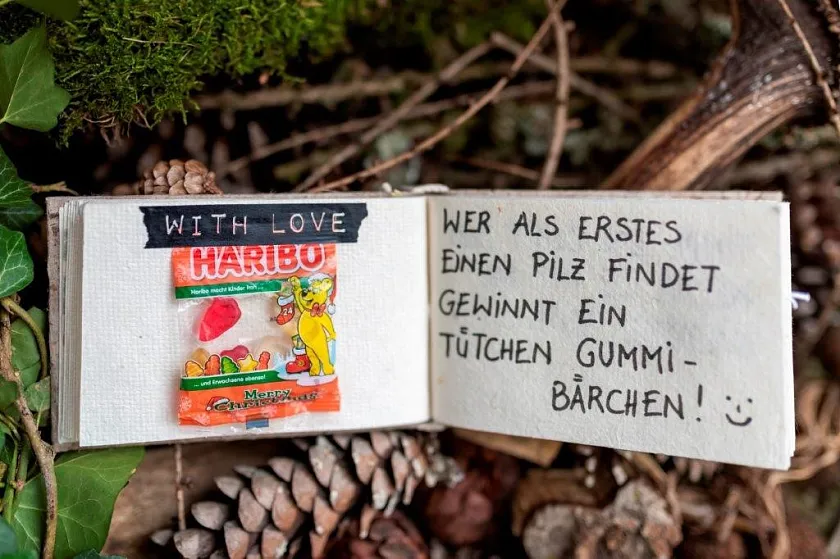 WITH LOVE
HARIBO
Haribo macht Kinder froh ...
24
... und Erwachsene ebenso!
Merry
Christmas
WER ALS ERSTES
EINEN PILZ FINDET
GEWINNT EIN
TÜTCHEN GUMMI-
BÄRCHEN!